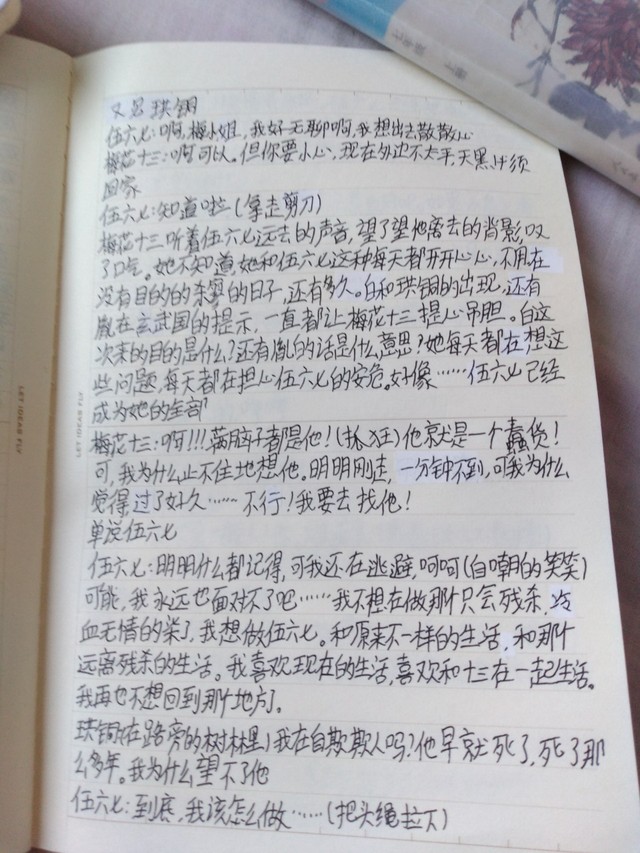 又名珙铜
伍六七:啊,梅小姐,我好无聊啊,我想出去散散心
梅花十三:啊,可以。但你要小心,现在外边不太平,天黑必须
回家
伍六七:知道啦(拿走剪刀)
梅花十三听着伍六七远去的声音,望了望他离去的背影,叹
了口气。她不知道,她和伍六七这种每天都开开心心,不用在
没有目的的杀寥的日子,还有多久。白和珙铜的出现,还有
胤在玄武国的提示,一直都让梅花十三提心吊胆。白这
次来的目的是什么?还有胤的话是什么意思?她每天都在想这
些问题,每天都在担心伍六七的安危。好像……伍六七已经
成为她的全部
梅花十三:啊!!!满脑子都是他!(抓狂)他就是一个蠢货!
可,我为什么止不住地想他。明明刚走,一分钟不到,可我为什么
觉得过了好久……不行!我要去找他!
单说伍六七
伍六七:明明什么都记得,可我还在逃避,呵呵(自嘲的笑笑)
可能,我永远也面对不了吧……我不想在做那个只会残杀,冷
血无情的柒了,我想做伍六七。和原来不一样的生活,和那个
远离残杀的生活。我喜欢现在的生活,喜欢和十三在一起生活。
我再也不想回到那个地方。
珙铜(在路旁的树林里)我在自欺欺人吗?他早就死了,死了那
么多年。我为什么望不了他
伍六七:到底,我该怎么做……(把头绳拉下)
LET IDEAS FLY
LET IDEAS FLY